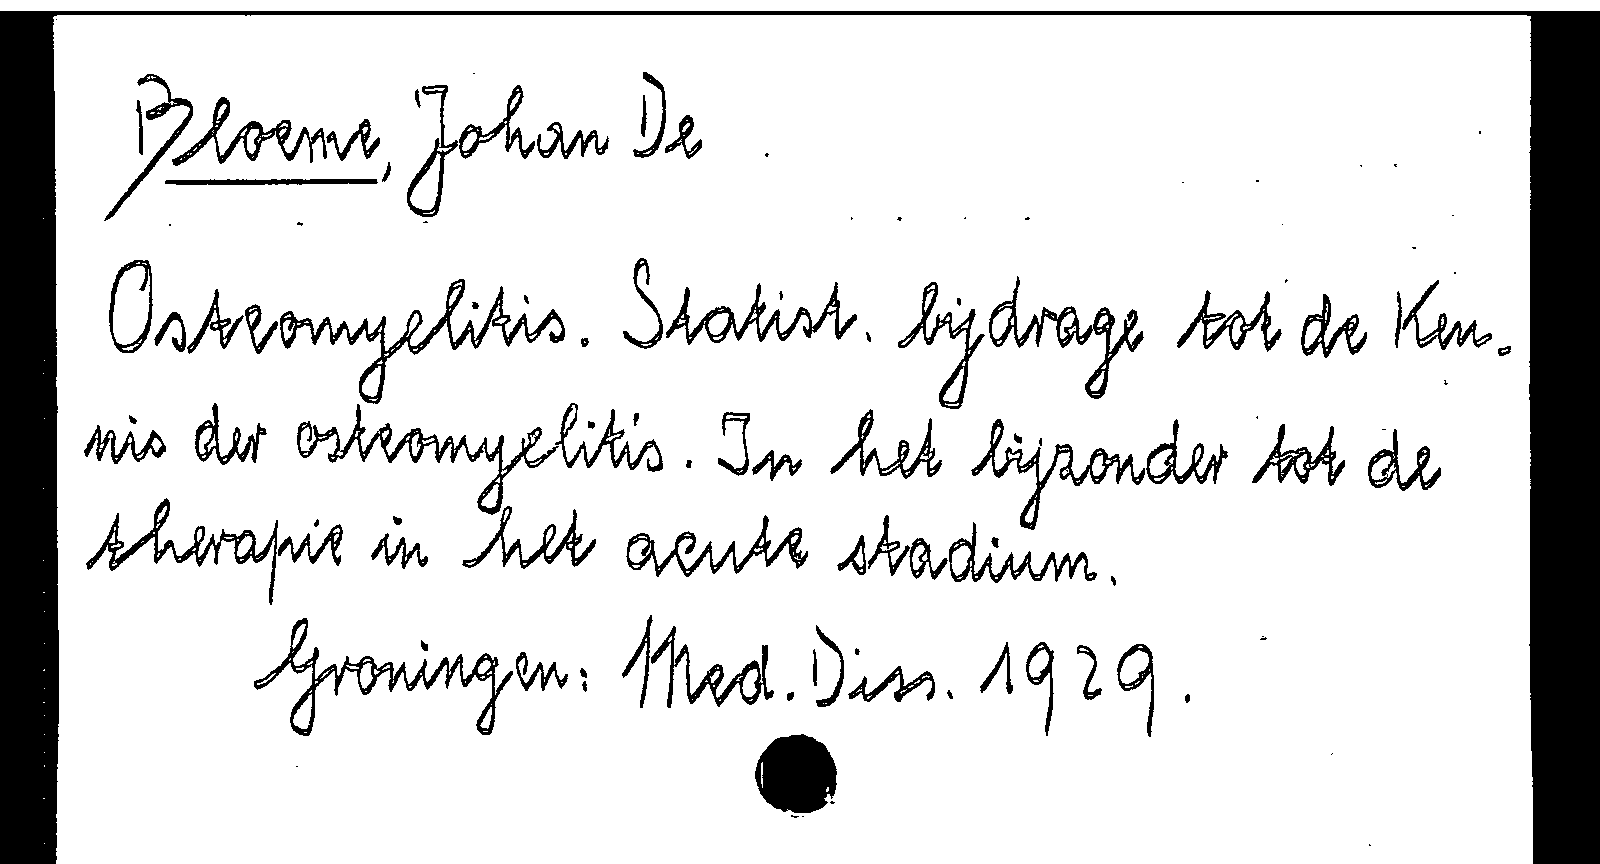 Bloeme, Johan De
Osteomyelitis. Statist. bijdrage tot de Ken-
nis der osteomyelitis. In het bijzonder tot de
therapie in het acute stadium.
Groningen: Med. Diss. 1929.